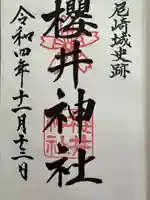 尼崎城史跡
櫻井神社
令和四年十一月十三日